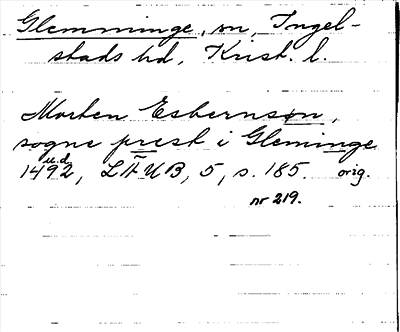 Glemminge, sn, Ingel-
stads hd, Krist. l.
Morten Esbernsøn,
sogne prest i Gleminge
1492 u.d., LÄUB, 5, s. 185. orig.
nr 219.